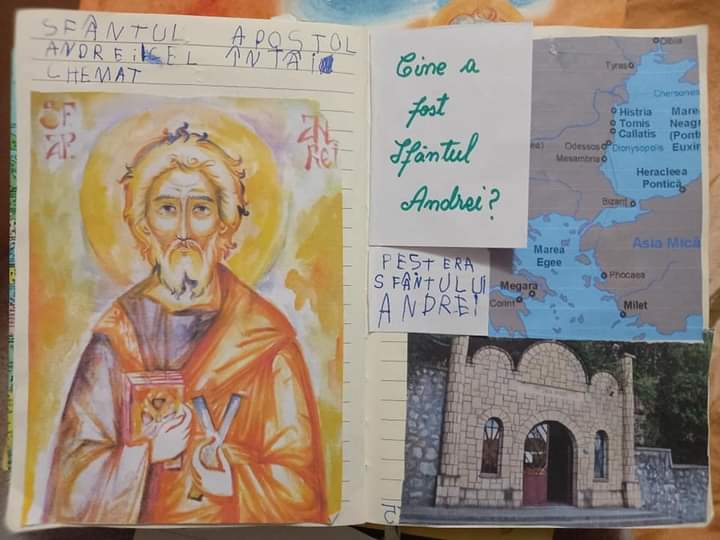 SFÂNTUL APOSTOL
ANDREI CEL ÎNTÂI
CHEMAT
SF
AP.
AN
REI
Cine a
fost
Sfântul
Andrei?
PEȘTERA
SFÂNTULUI
ANDREI
Olbia
Tyras
Chersones
Histria
Tomis
Callatis
Mare
Neag
(Pont
Euxin
Odessos
Dionysopolis
Mesembria
Heracleea
Pontică
Bizanț
Asia Mică
Marea
Egee
Phocaea
Megara
Corint
Milet